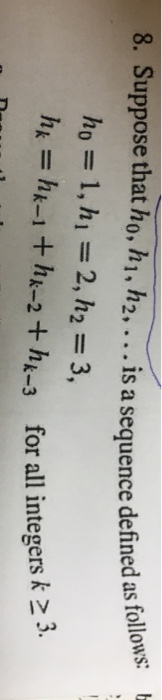 8. Suppose that h₀, h₁, h₂, ... is a sequence defined as follows:
h₀ = 1, h₁ = 2, h₂ = 3,
hₖ = hₖ₋₁ + hₖ₋₂ + hₖ₋₃ for all integers k ≥ 3.